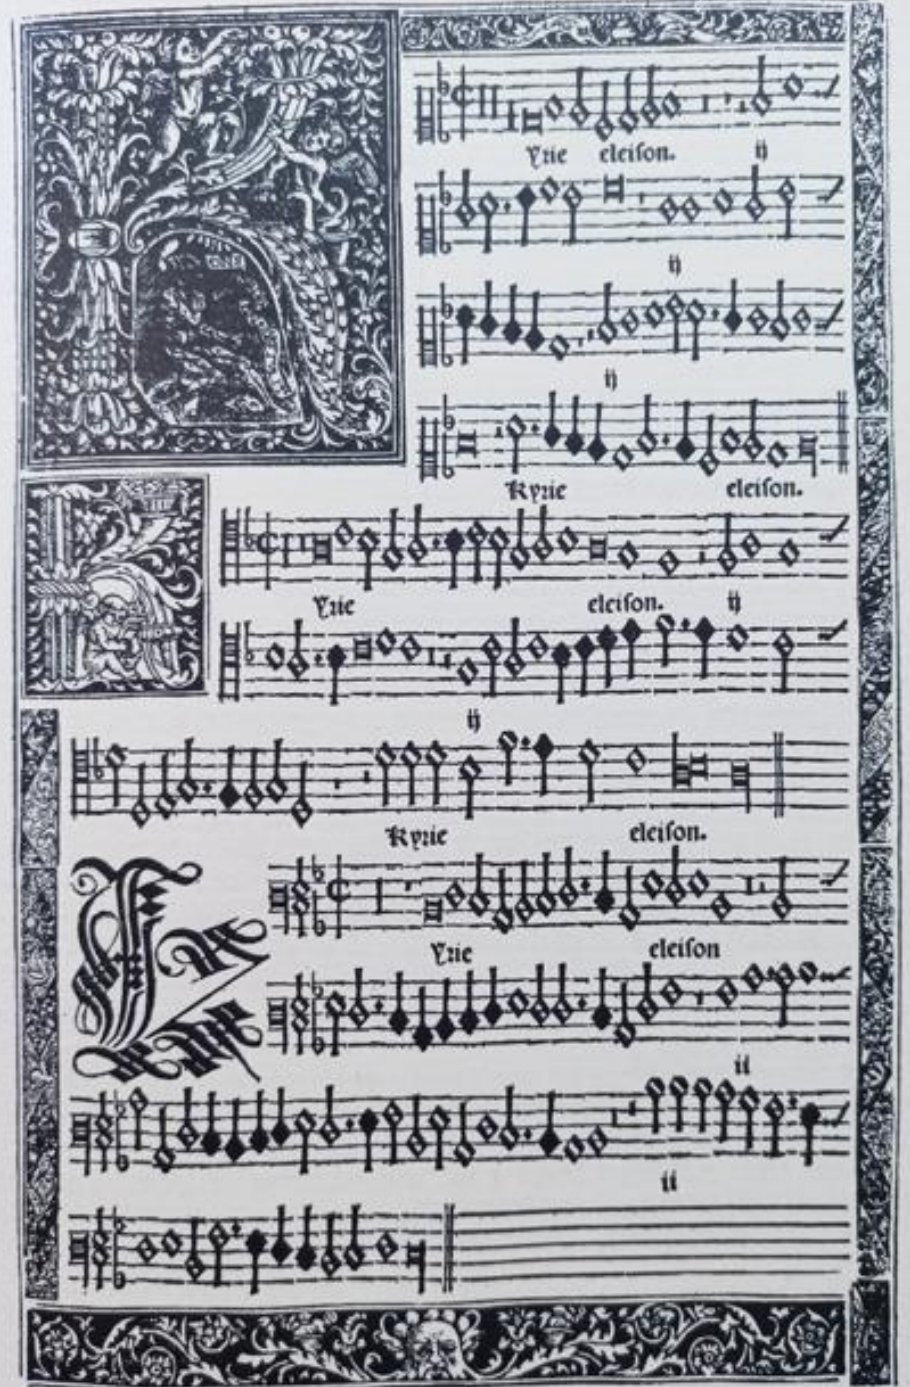 Yrie eleison. ij
ij
ij
Kyrie eleison.
Yrie eleison. ij
ij
Kyrie eleison.
Yrie eleison
ii
ii